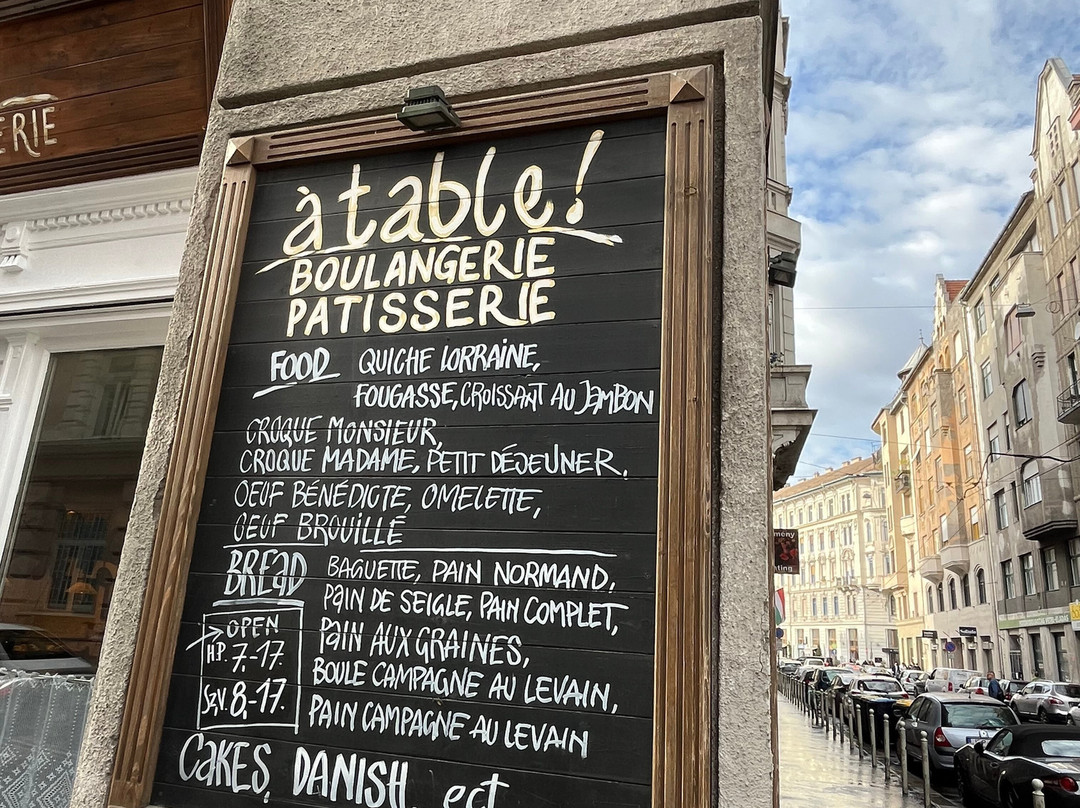 ERIE
à table!
BOULANGERIE
PATISSERIE
FOOD QUICHE LORRAINE,
FOUGASSE, CROISSANT AU JAMBON
CROQUE MONSIEUR,
CROQUE MADAME, PETIT DÉJEUNER.
OEUF BÉNÉDICTE, OMELETTE,
OEUF BROUILLÉ
BREAD BAGUETTE, PAIN NORMAND,
PAIN DE SEIGLE, PAIN COMPLET,
PAIN AUX GRAINES,
BOULE CAMPAGNE AU LEVAIN,
PAIN CAMPAGNE AU LEVAIN
OPEN
H.P. 7-17.
SZ.V. 8-17.
CAKES, DANISH, ect